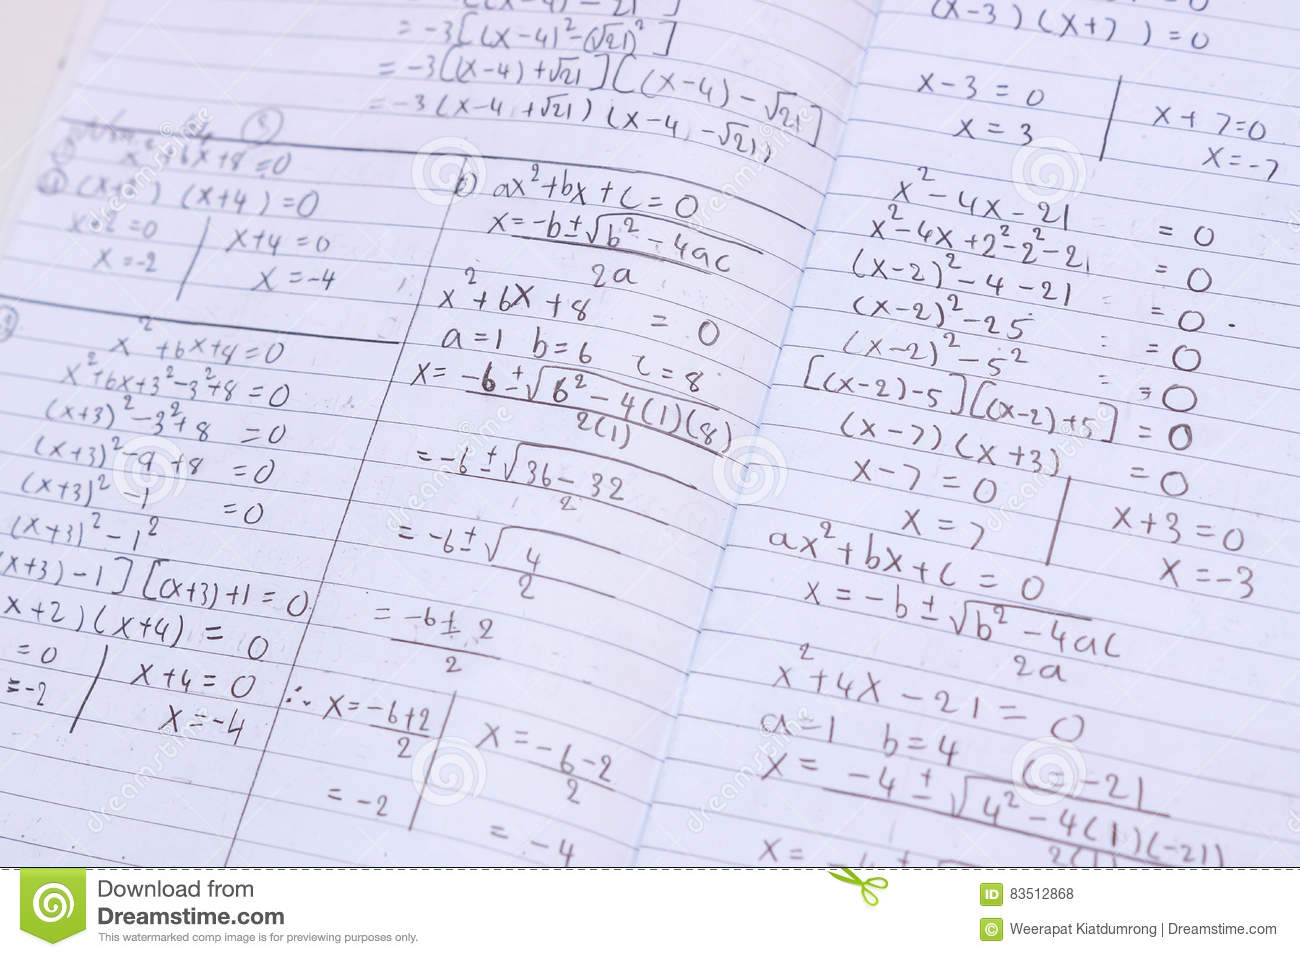 = -3[(x-4)²-(√21)²]
= -3[(x-4)+√21][(x-4)-√21]
= -3(x-4+√21)(x-4-√21)
x²+6x+8=0
(x+2)(x+4)=0
x+2=0 | x+4=0
x=-2 | x=-4
x²+6x+4=0
x²+6x+3²-3²+8=0
(x+3)²-3²+8 =0
(x+3)²-9+8 =0
(x+3)²-1 =0
(x+3)²-1²
(x+3)-1][(x+3)+1=0
x+2)(x+4) = 0
=0 | x+4=0
=-2 | x=-4
b) ax²+bx+c=0
x=-b±√b²-4ac
2a
x²+6x+8 = 0
a=1 b=6 c=8
x= -6±√6²-4(1)(8)
2(1)
=-6±√36-32
2
= -6±√4
2
= -6±2
2
∴ x=-6+2 | x=-6-2
2 | 2
= -2 | = -4
(x-3)(x+7)=0
x-3=0 | x+7=0
x=3 | x=-7
x²-4x-21 =0
x²-4x+2²-2²-21 =0
(x-2)²-4-21 =0.
(x-2)²-25 =0
(x-2)²-5² =0
[(x-2)-5][(x-2)+5] =0
(x-7)(x+3) =0
x-7=0 | x+3=0
x=7 | x=-3
ax²+bx+c=0
x=-b±√b²-4ac
2a
x²+4x-21=0
a=1 b=4 c=-21
x= -4±√4²-4(1)(-21)
2(1)
x= -4±
Download from
Dreamstime.com
This watermarked comp image is for previewing purposes only.
ID 83512868
© Weerapat Kiatdumrong | Dreamstime.com